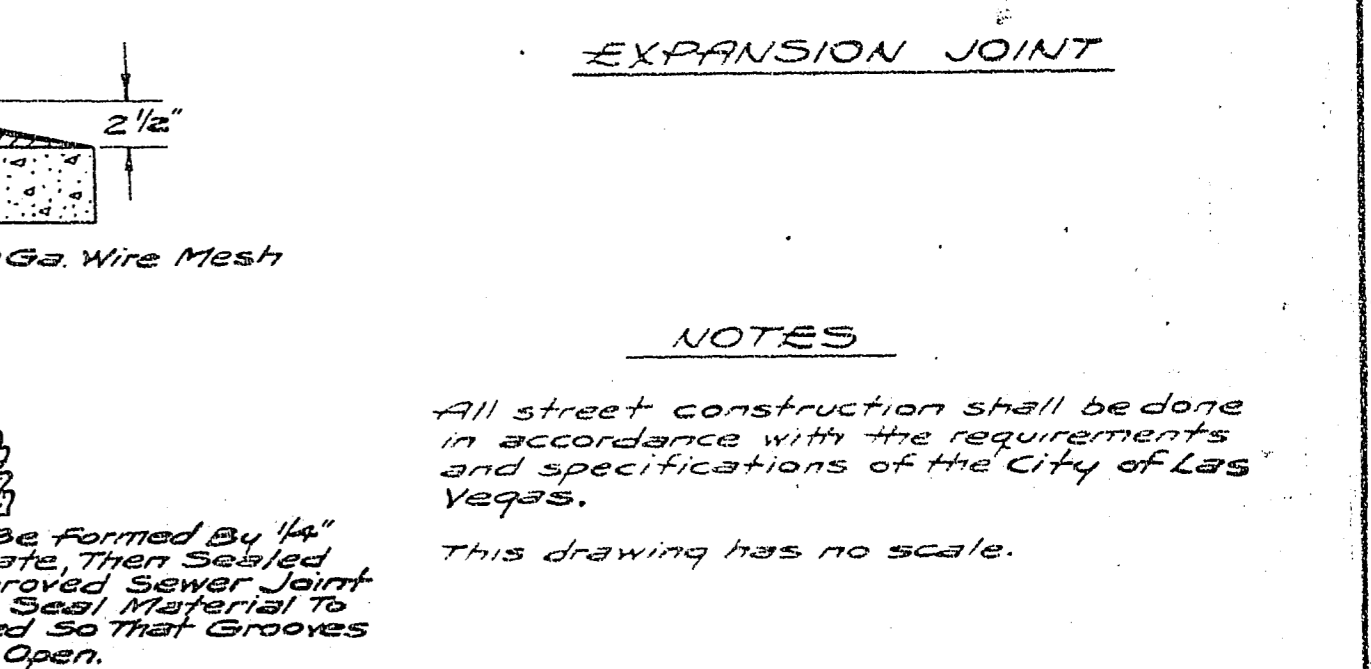 EXPANSION JOINT
2 1/2"
Ga. Wire Mesh
NOTES
All street construction shall be done
in accordance with the requirements
and specifications of the City of Las
Vegas.
This drawing has no scale.
Be Formed By 1/4"
ate, Then Sealed
roved Sewer Joint
Seal Material To
ed So That Grooves
Open.